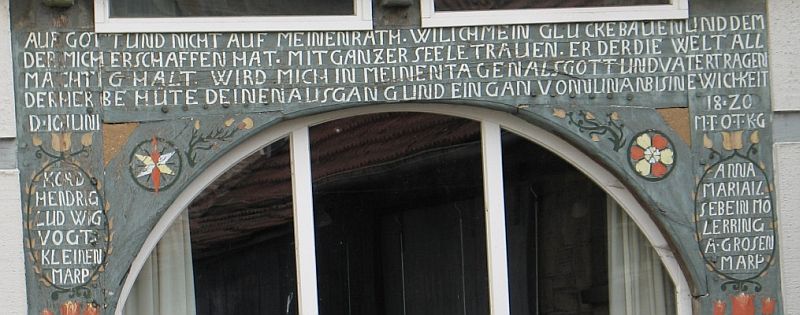 AUF GOTT UND NICHT AUF MEINENRATH. WILICHMEIN GLÜCKEBAUENUNDDEM
DER MICH ERSCHAFFEN HAT. MITGANZER SEELETRAUEN. ER DERDIE WELT ALL
MÄCHTIG HÄLT. WIRD MICH IN MEINENTAGENALSGOTTUNDVATERTRAGEN
DERHERBE HÜTE DEINENAUSGANGUNDEINGAN VONNUNANBISINEWICHKEIT
D.IG IUNI
18.20
M.T.O.T.K.G
KORD
HENDRIG
LUDWIG
VOGT
KLEINEN
MARP
ANNA
MARIAIL
SEBEINMÖ
LERRING
A.GROSEN
MARP